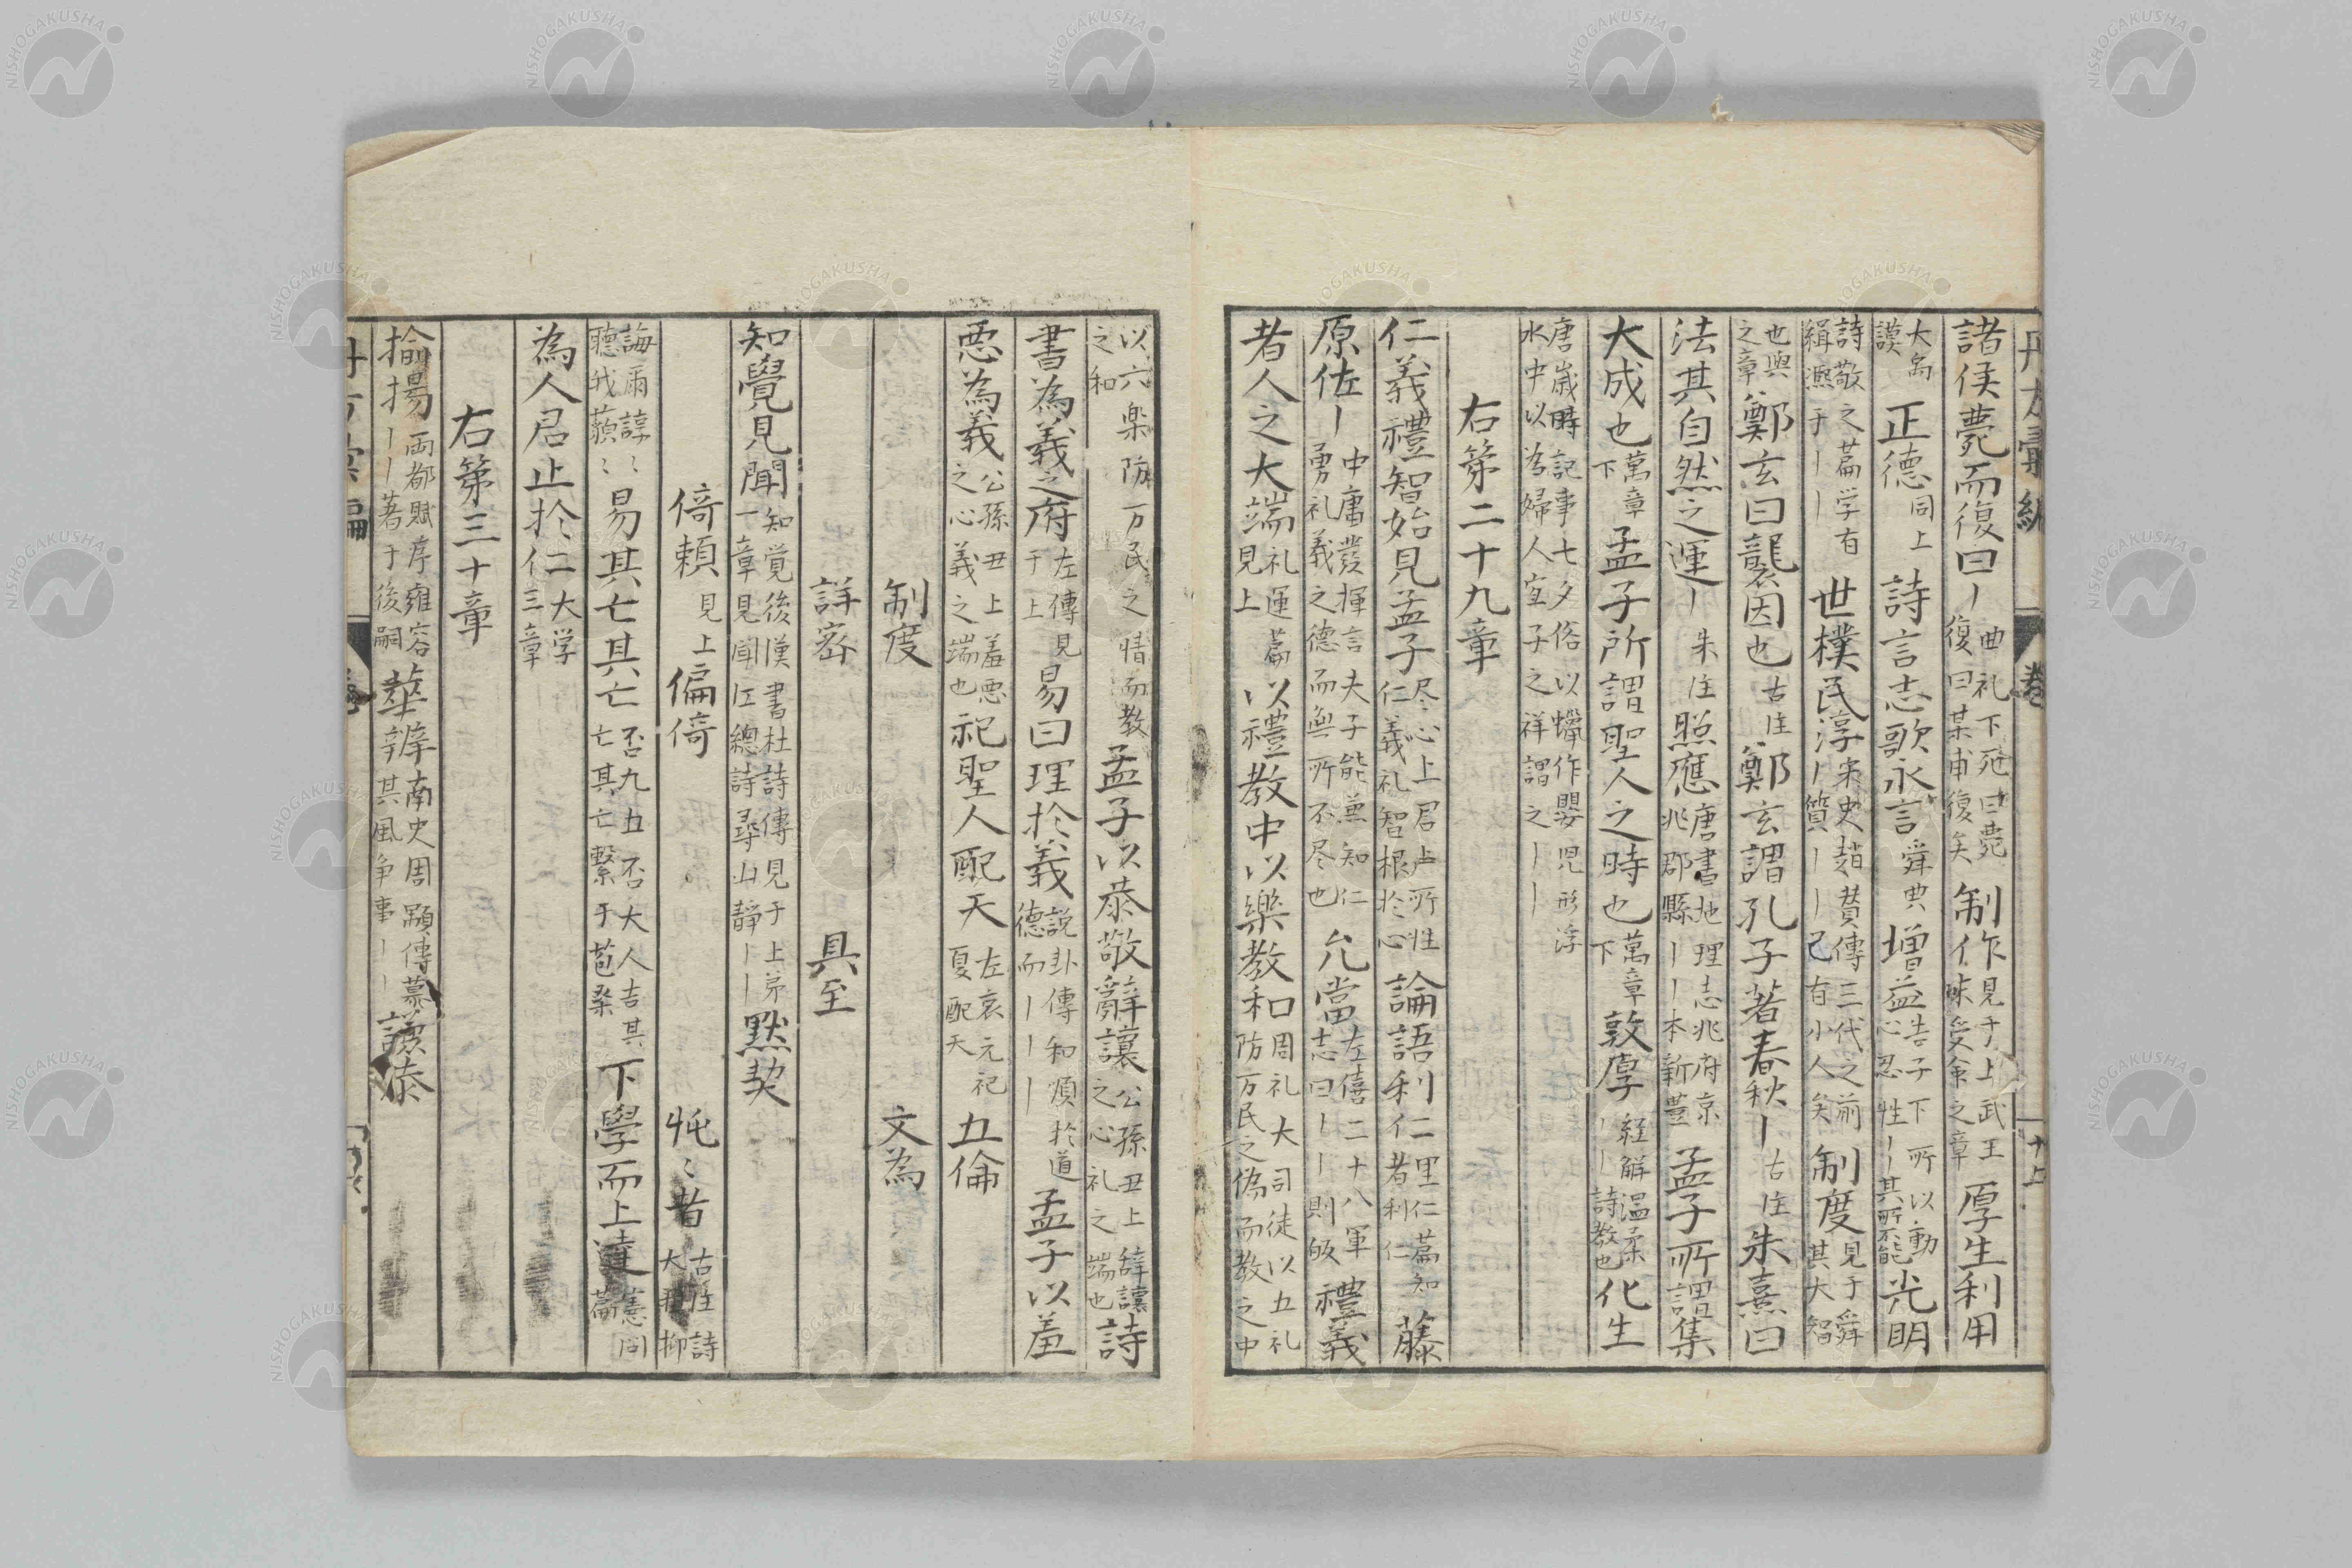 諸侯薨而復曰｜曲礼下死曰薨復曰某甫復矣 制作見于上武王味受命之章 厚生利用
大禹謨 正德同上 詩言志歌永言舜典 増益告子下所以動心忍性｜其所不能 光明
詩敬之篇学有緝凞于｜｜ 世樸民淳宋史趙賛傳三代之前｜質｜｜己有小人矣 制度見于舜其大智
也與之章 鄭玄曰襲因也古注 鄭玄謂孔子著春秋｜古注 朱熹曰
法其自然之運｜朱注 照應唐書地理志兆府京兆郡縣｜｜本新豊 孟子所謂集
大成也萬章下 孟子所謂聖人之時也萬章下 敦厚経解温柔｜｜詩教也 化生
唐歳時記事七夕俗以蠟作嬰児形浮水中以為婦人宜子之祥謂之｜｜
右第二十九章
仁義禮智始見孟子尽心上君子所性仁義礼智根於心 論語利仁里仁篇知者利仁 藤
原佐｜中庸發揮言夫子能兼知仁勇礼義之德而無所不尽也 允當左僖二十八軍志曰｜｜則皈 禮義
者人之大端礼運篇見上 以禮教中以樂教和周礼大司徒以五礼防万民之偽而教之中
以六楽防万民之情而教之和 孟子以恭敬辭讓公孫丑上辞讓之心礼之端也 詩
書為義之府左傳見于上 易曰理於義説卦傳和順於道德而｜｜｜ 孟子以羞
惡為義公孫丑上羞悪之心義之端也 祀聖人配天左哀元祀夏配天 五倫
制度 文為
詳密 具至
知覺見聞知覚後漢書杜詩傳見于上第一章見聞江總詩尋山靜｜｜ 黙契
倚賴見上 偏倚 忳〻者古注詩大雅抑
誨爾諄〻聴我藐〻 易其亡其亡否九五否大人吉其亡其亡繋于苞桑 下學而上達憲問篇
為人君止於仁大学三章
右第三十章
揄揚両都賦序雍容｜｜著于後嗣 華辨南史周顒傳慕其風争事｜｜